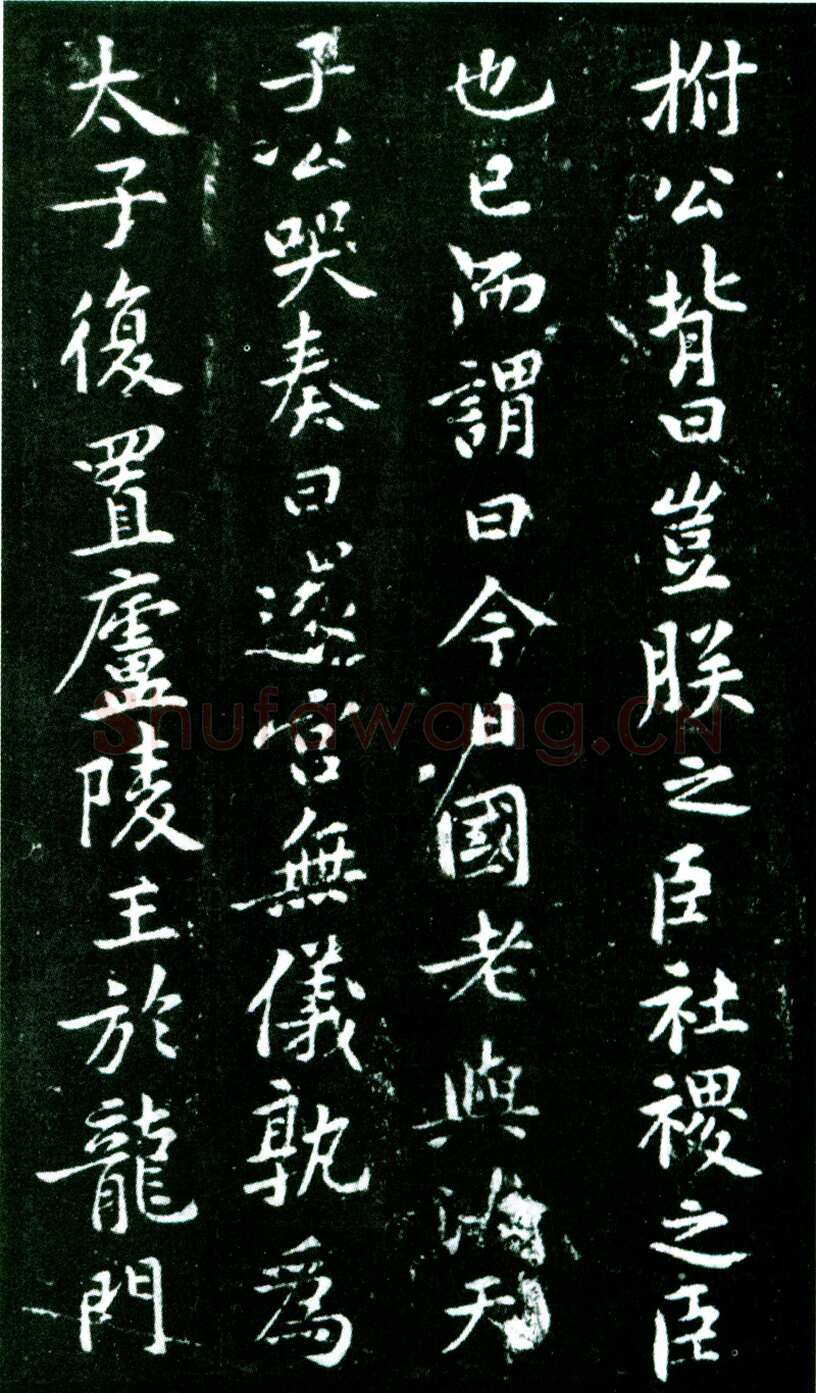 拊公背曰豈朕之臣社稷之臣
也已而謂曰今日國老與汝天
子公哭奏曰還宮無儀孰為
太子復置廬陵王於龍門
shufawang.CN